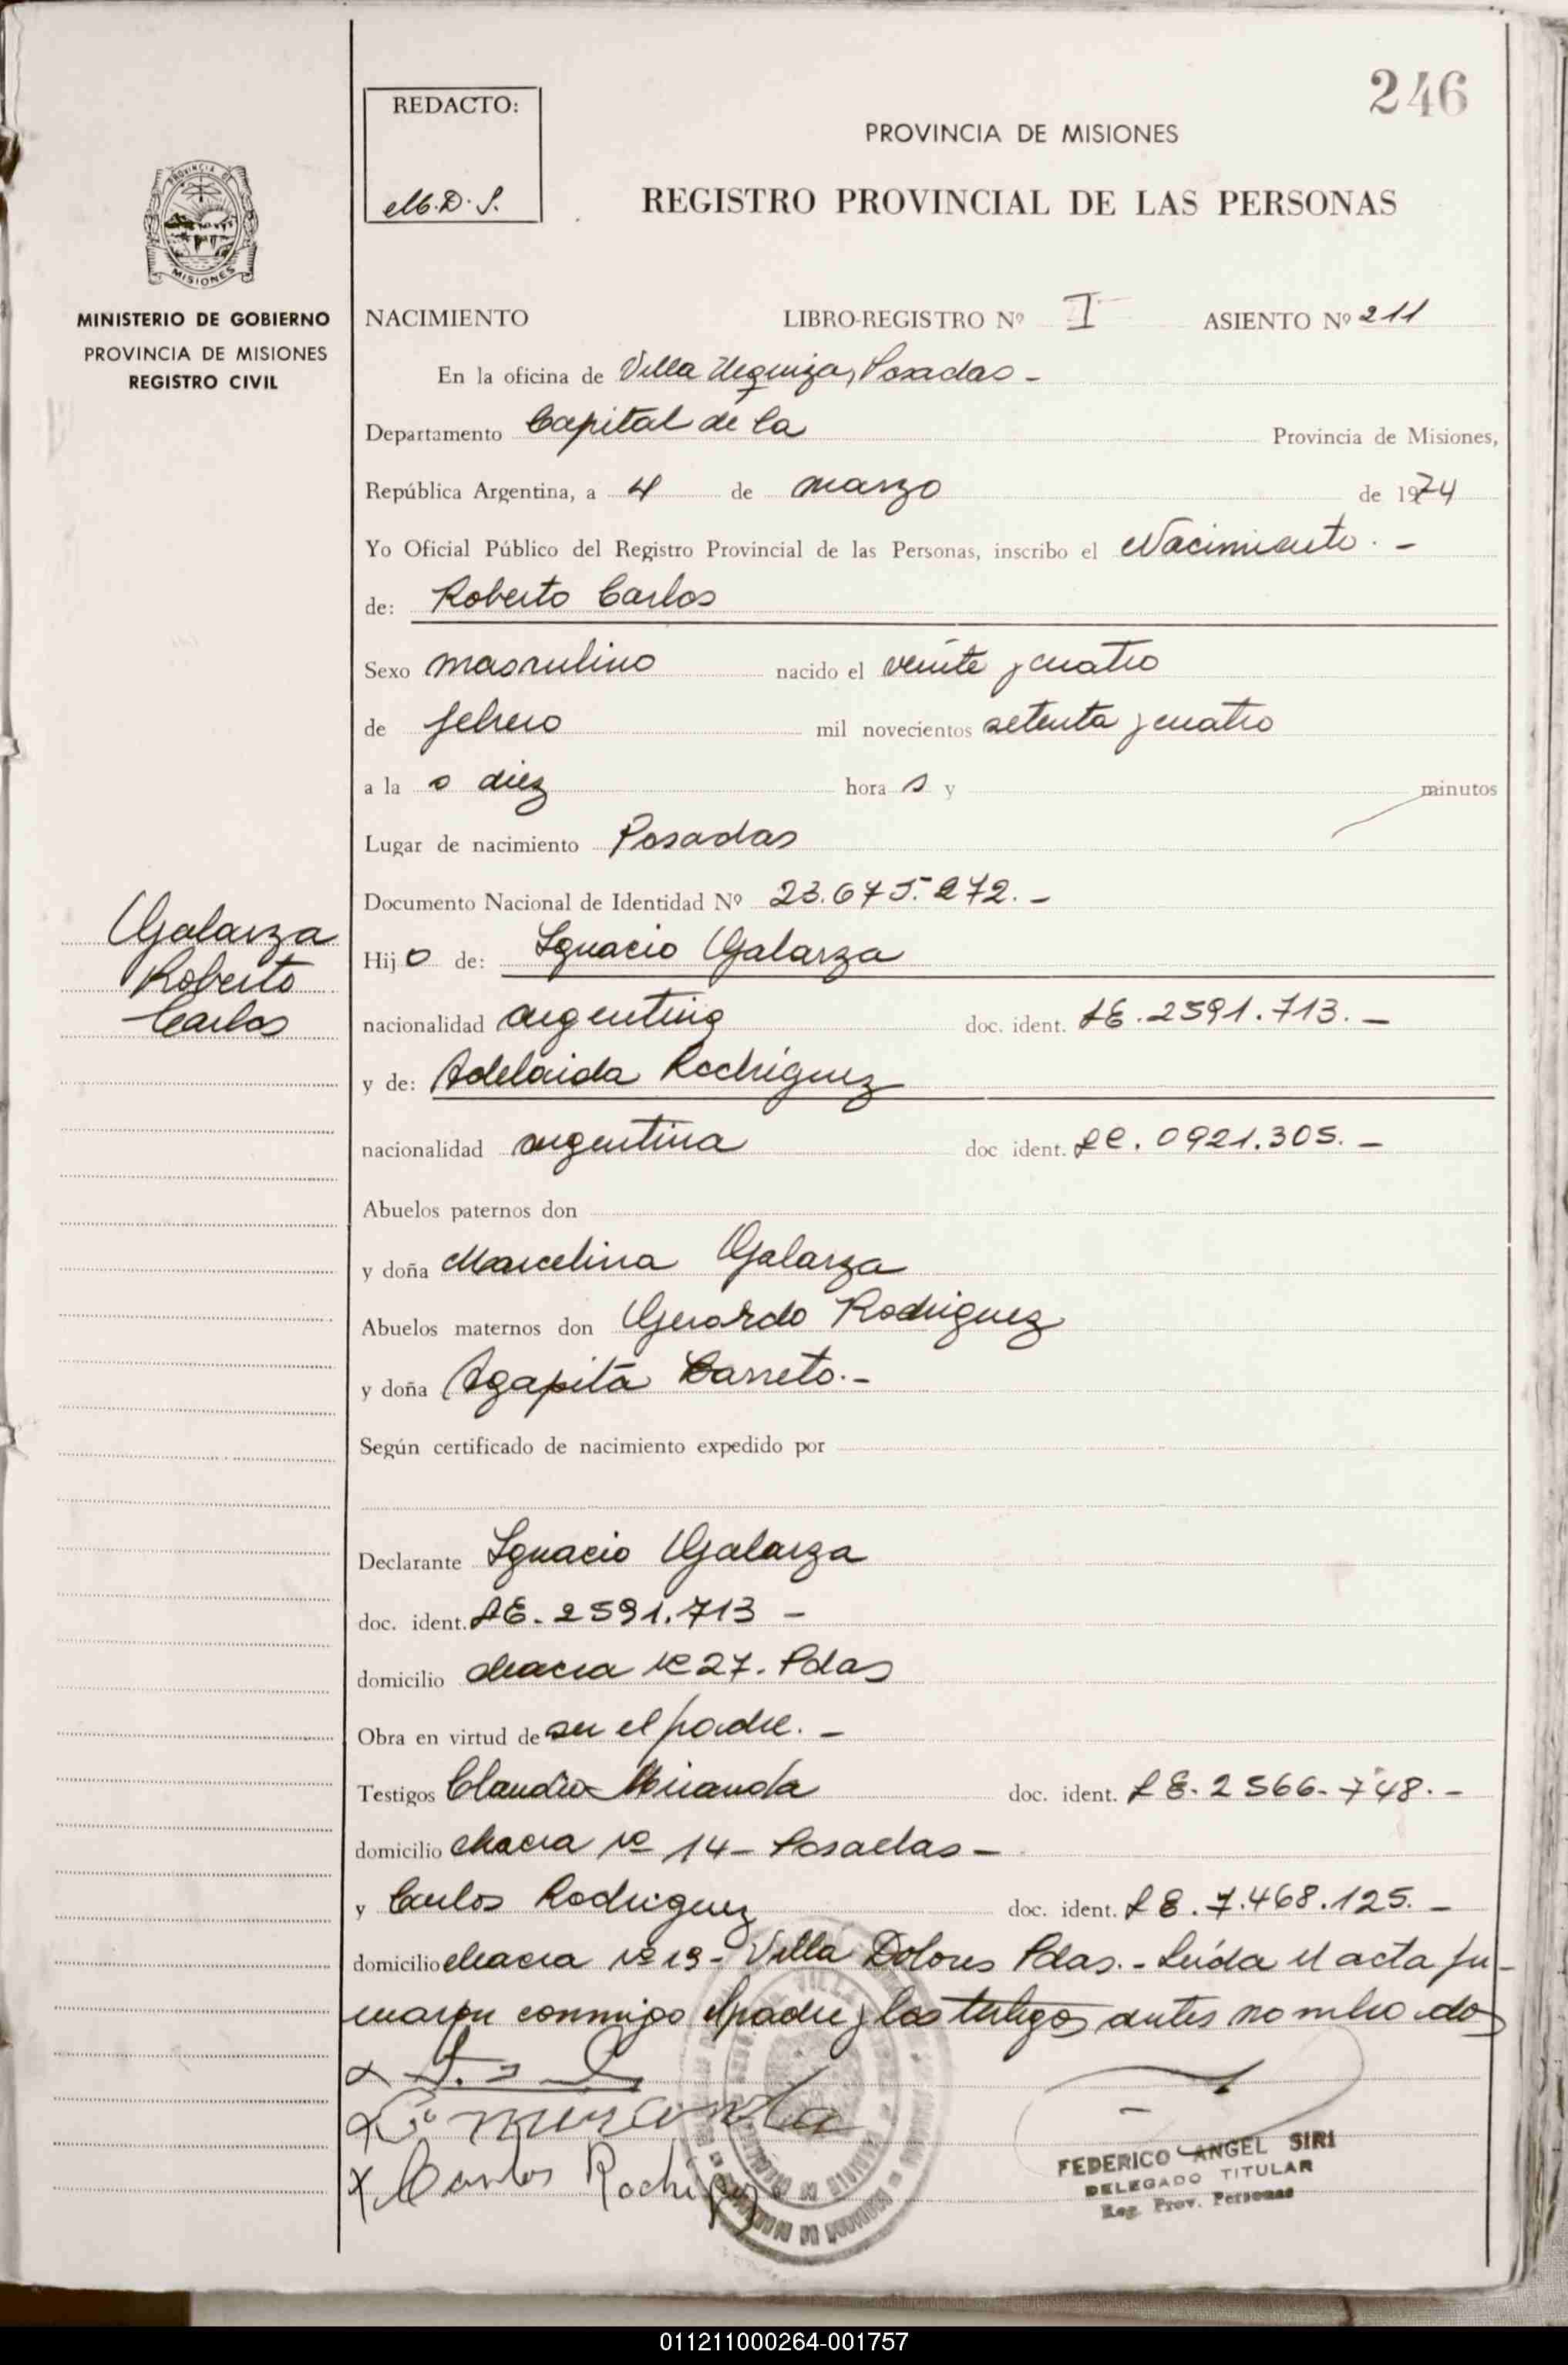 246
REDACTO:
M.D.S.
PROVINCIA DE MISIONES
REGISTRO PROVINCIAL DE LAS PERSONAS
PROVINCIA DE
MISIONES
MINISTERIO DE GOBIERNO
PROVINCIA DE MISIONES
REGISTRO CIVIL
NACIMIENTO LIBRO-REGISTRO Nº I ASIENTO Nº 211
En la oficina de Villa Urquiza, Posadas -
Departamento Capital de la Provincia de Misiones,
República Argentina, a 4 de marzo de 1974
Yo Oficial Público del Registro Provincial de las Personas, inscribo el Nacimiento. -
de: Roberto Carlos
Sexo masculino nacido el veinte y cuatro
de febrero mil novecientos setenta y cuatro
a la s diez hora s y minutos
Lugar de nacimiento Posadas
Documento Nacional de Identidad Nº 23.675.272. -
Galarza
Roberto
Carlos
Hijo de: Ignacio Galarza
nacionalidad argentina doc. ident. LE. 2591.713. -
y de: Adelaida Rodriguez
nacionalidad argentina doc ident. LC. 0921.305. -
Abuelos paternos don
y doña Marcelina Galarza
Abuelos maternos don Gerardo Rodriguez
y doña Agapita Barreto. -
Según certificado de nacimiento expedido por
Declarante Ignacio Galarza
doc. ident. LE. 2591.713 -
domicilio chacra Nº 27. Pdas
Obra en virtud de ser el padre. -
Testigos Claudio Miranda doc. ident. LE. 2566-748. -
domicilio chacra Nº 14 - Posadas -
y Carlos Rodriguez doc. ident. LE. 7.468.125. -
domicilio chacra Nº 19 - Villa Dolores Pdas. - Leída el acta fir-
maron conmigo el padre y los testigos antes nombrados
C. miranda
x Carlos Rodriguez
FEDERICO ANGEL SIRI
DELEGADO TITULAR
Reg. Prov. Personas
011211000264-001757